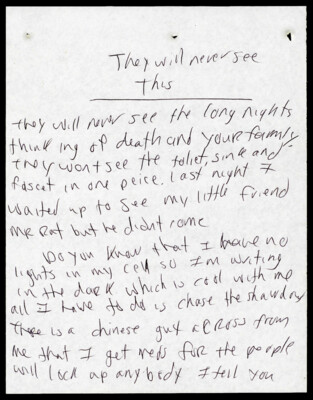 They will never see
this
They will never see the long nights
thinking of death and your family
They wont see the toilet, sink and
fascet in one peice. Last night I
waited up to see my little friend
me rat but he didnt come
Do you know that I have no
lights in my cell so I'm writing
in the dark which is cool with me
all I have to do is chase the shawdow
There is a chinese guy across from
me that I get meds for the people
will lock up anybody I tell you